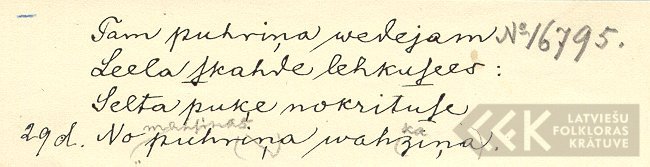 Tam puhriņa wedejam № 16795.
Leela skahde lehkusees:
Selta puķe nokrituse
29d. No puhriņa wahziņa.
LATVIEŠU
FOLKLORAS
KRĀTUVE